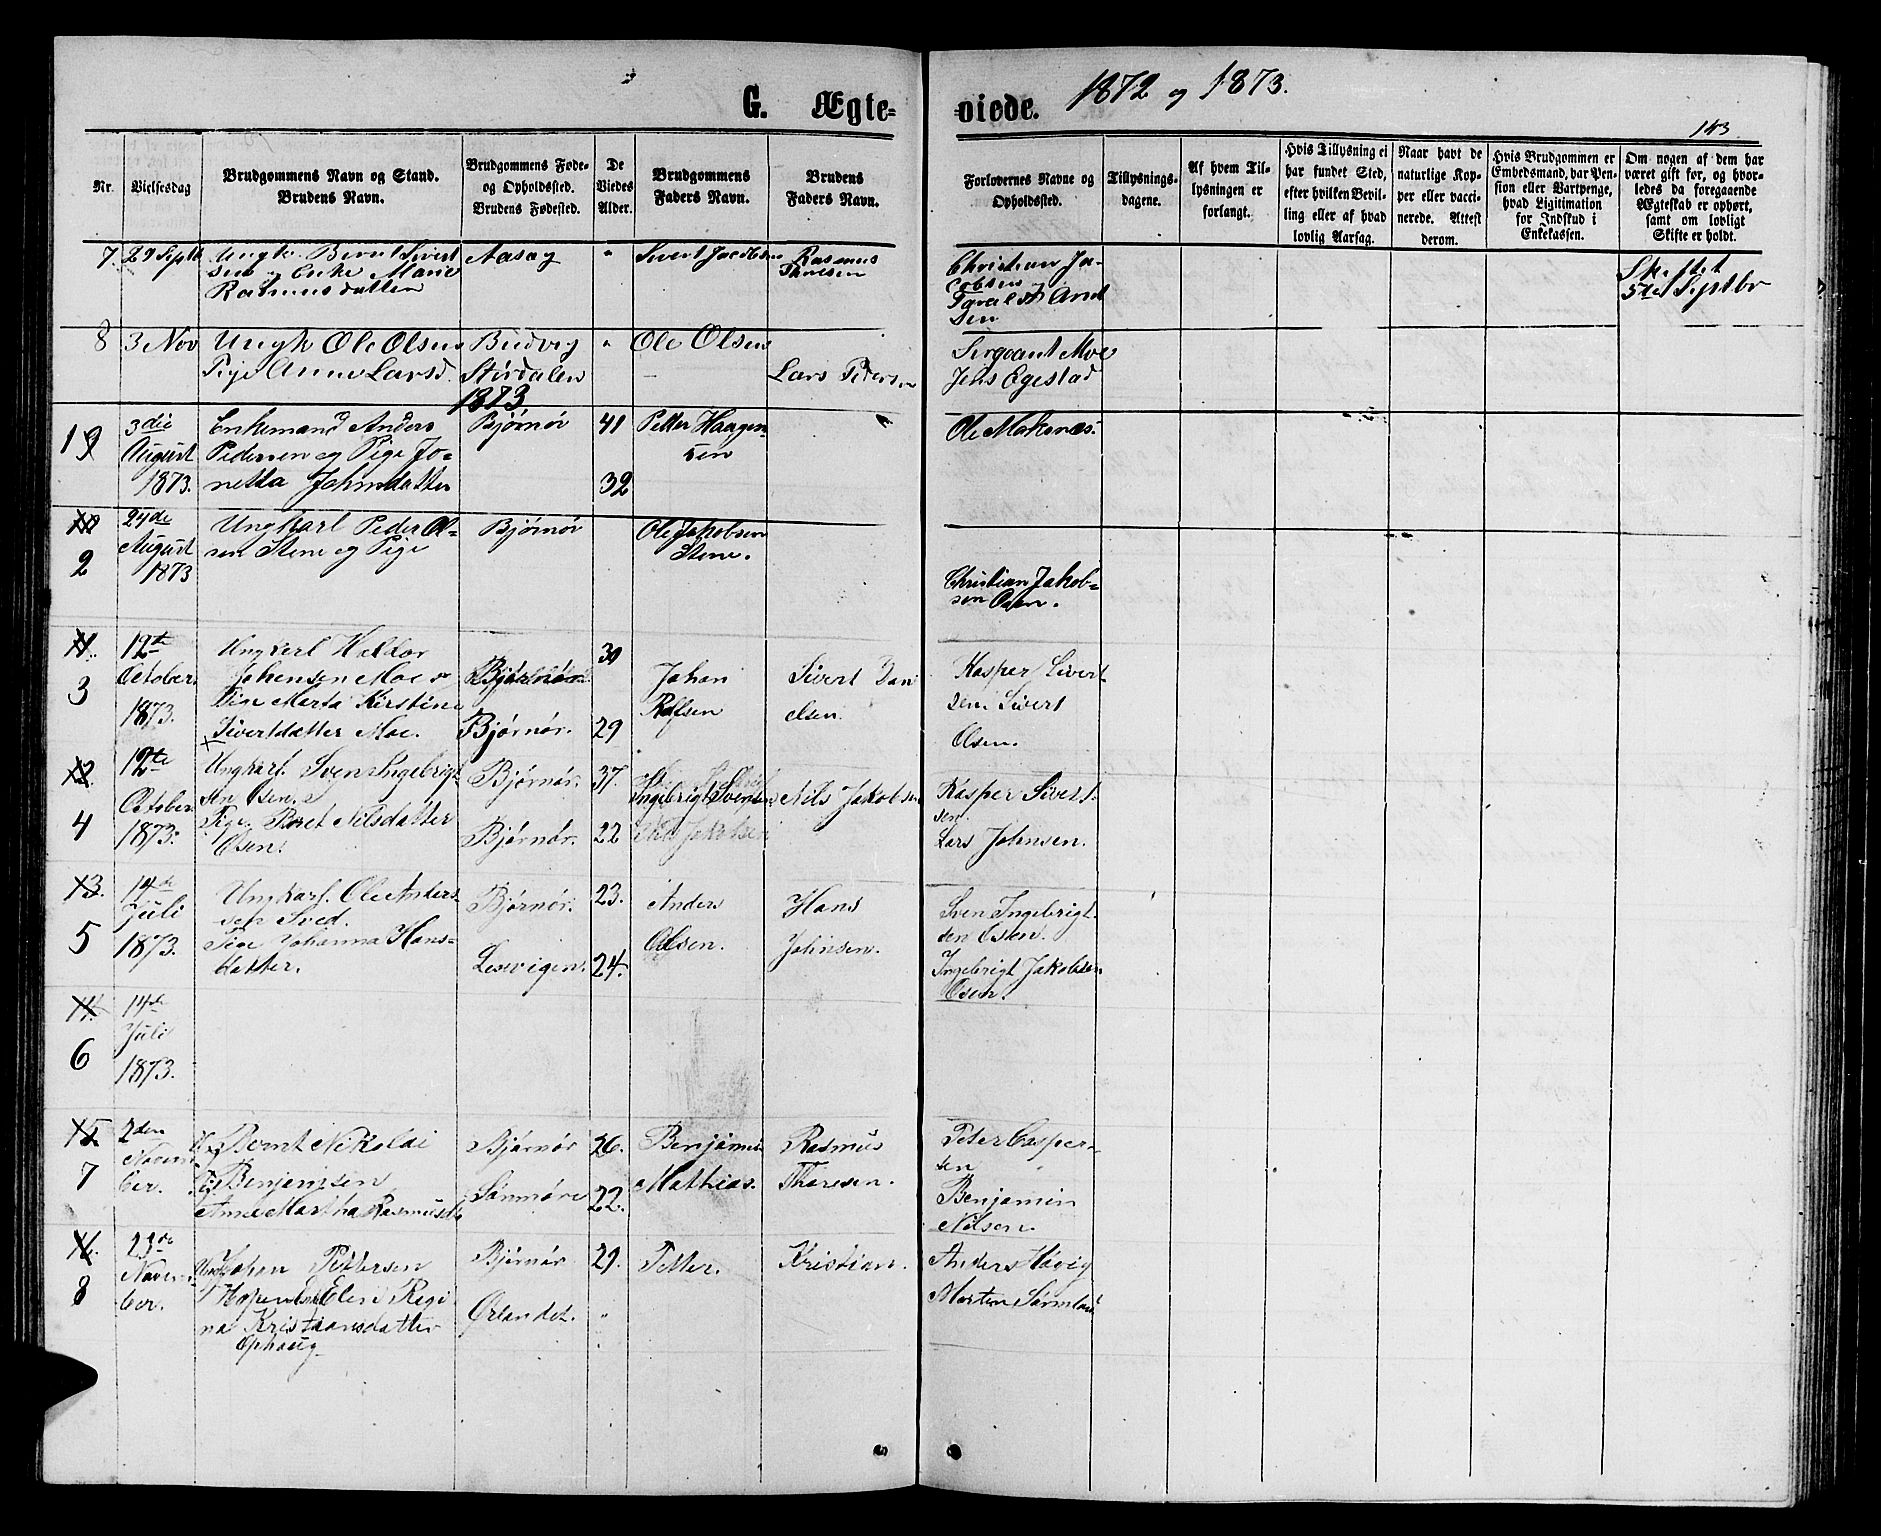 G. Ægte=
viede. 1872 og 1873.
143.
Nr.
Vielsesdag
Brudgommens Navn og Stand.
Brudens Navn.
Brudgommens Føde-
og Opholdssted.
Brudens Fødested.
De
Viedes
Alder.
Brudgommens
Faders Navn.
Brudens
Faders Navn.
Forlovernes Navne og
Opholdssted.
Tillysnings-
dagene.
Af hvem Til-
lysningen er
forlangt.
Hvis Tillysning ei
har fundet Sted,
efter hvilken Bevil-
ling eller af hvad
lovlig Aarsag.
Naar havt de
naturlige Kop-
per eller vacci-
nerede. Attest
derom.
Hvis Brudgommen er
Embedsmand, har Pen-
sion eller Vartpenge,
hvad Legitimation
for Indskud i
Enkekassen.
Om nogen af dem har
været gift før, og hvor-
ledes da foregaaende
Ægteskab er ophørt,
samt om lovligt
Skifte er holdt.
7. 29 Septb
Ungk. Bernt Sivert
sen og Enke Marie
Rasmusdatter
Aasog
"
Sivert Jacobsen
Rasmus
Thoresen
Christian Ja-
cobsen og
Arnt
sen
Skiftet
5te Septbr
8 3 Nov
Ungk Ole Olsen
Pige Anne Larsd.
Budvig
Stördalen
"
Ole Olsen
Lars Pedersen
Sergeant Moe
Jens Egestad
1873
19
3die
August
1873.
Enkemand Anders
Pedersen og Pige Jo-
netta Johnsdatter
Bjørnør
41
32
Petter Haagen-
sen
Ole Mækenes.
10
2
24de
August
1873
Ungkarl Peder Ol-
sen Stene og Pige
Bjørnør
Ole Jakobsen
Stene.
Christian Jakob-
sen Osen.
11.
3
12te
October
1873.
Ungkarl Haldor
Johansen Moe o
Pige Marta Kirstine
Sivertdatter Moe.
Bjørnør.
Bjørnør.
30
29
Johan
Rolfsen
Sivert Dan
elsen.
Kasper Sivert-
sen. Sivert
Olsen.
12.
4
12te
October
1873.
Ungkarl. Sven Ingebrigt-
sen Osen. o
Pige. Beret Nilsdatter
Osen.
Bjørnør.
Bjørnør.
37.
22
Ingebrigt Svensen
Nils Jakobsen
Nils Jakobsen
Kasper Sivert-
sen.
Lars Johnsen.
13.
5
14de
Juli
1873.
Ungkarl. Ole Anders-
sen Sved.
Pige Johanna Hans-
datter.
Bjørnør.
Lesevigen.
23.
24.
Anders
Olsen.
Hans
Johnsen.
Sven Ingebrigt.
sen Osen.
Ingebrigt Jakobsen
Osen.
14.
6
14de
Juli
1873.
15.
7
2den
Novem-
ber.
Bernt Nikolai
Benjamsen
Anne Martha Rasmusd.
Bjørnør
Sønmøre
26.
22.
Benjamin
Mathias.
Rasmus
Thoresen.
Peter Casper-
sen
Benjamin
Nilsen.
16.
8
23de
Novem-
ber.
Johan Pettersen
Hopen Elen Regi
na Kristiansdatter
Ophaug
Bjørnør
Ørlandet.
29.
"
Petter.
Kristian.
Anders Høvig
Morten Sørmland